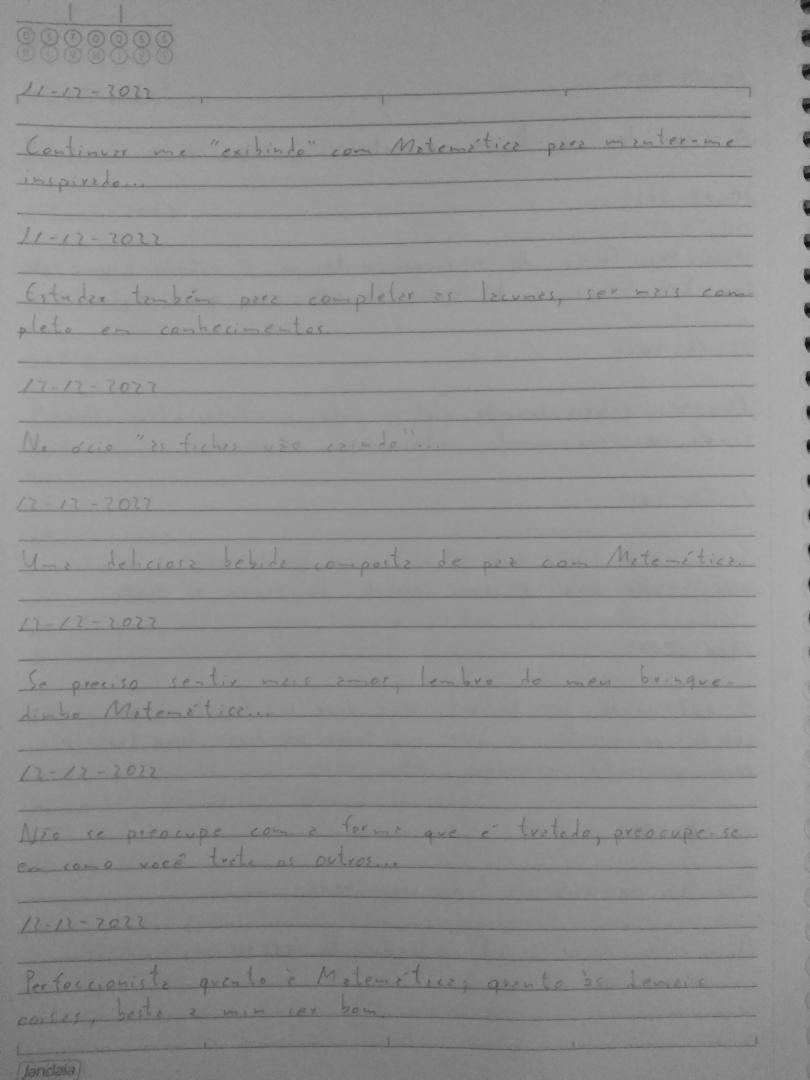 D S T Q Q S S
D L M M J V S
11-12-2022
Continuar me "exibindo" com Matemática para manter-me
inspirado...
11-12-2022
Estudar também para completar as lacunas, ser mais com-
pleto em conhecimentos.
12-12-2022
No ócio "as fichas vão caindo"...
12-12-2022
Uma deliciosa bebida composta de paz com Matemática.
12-12-2022
Se preciso sentir mais amor, lembro do meu brinque-
dinho Matemática...
12-12-2022
Não se preocupe com a forma que é tratado, preocupe-se
em como você trata os outros...
12-12-2022
Perfeccionista quanto à Matemática; quanto às demais
coisas, basta a mim ser bom.
Jandaia